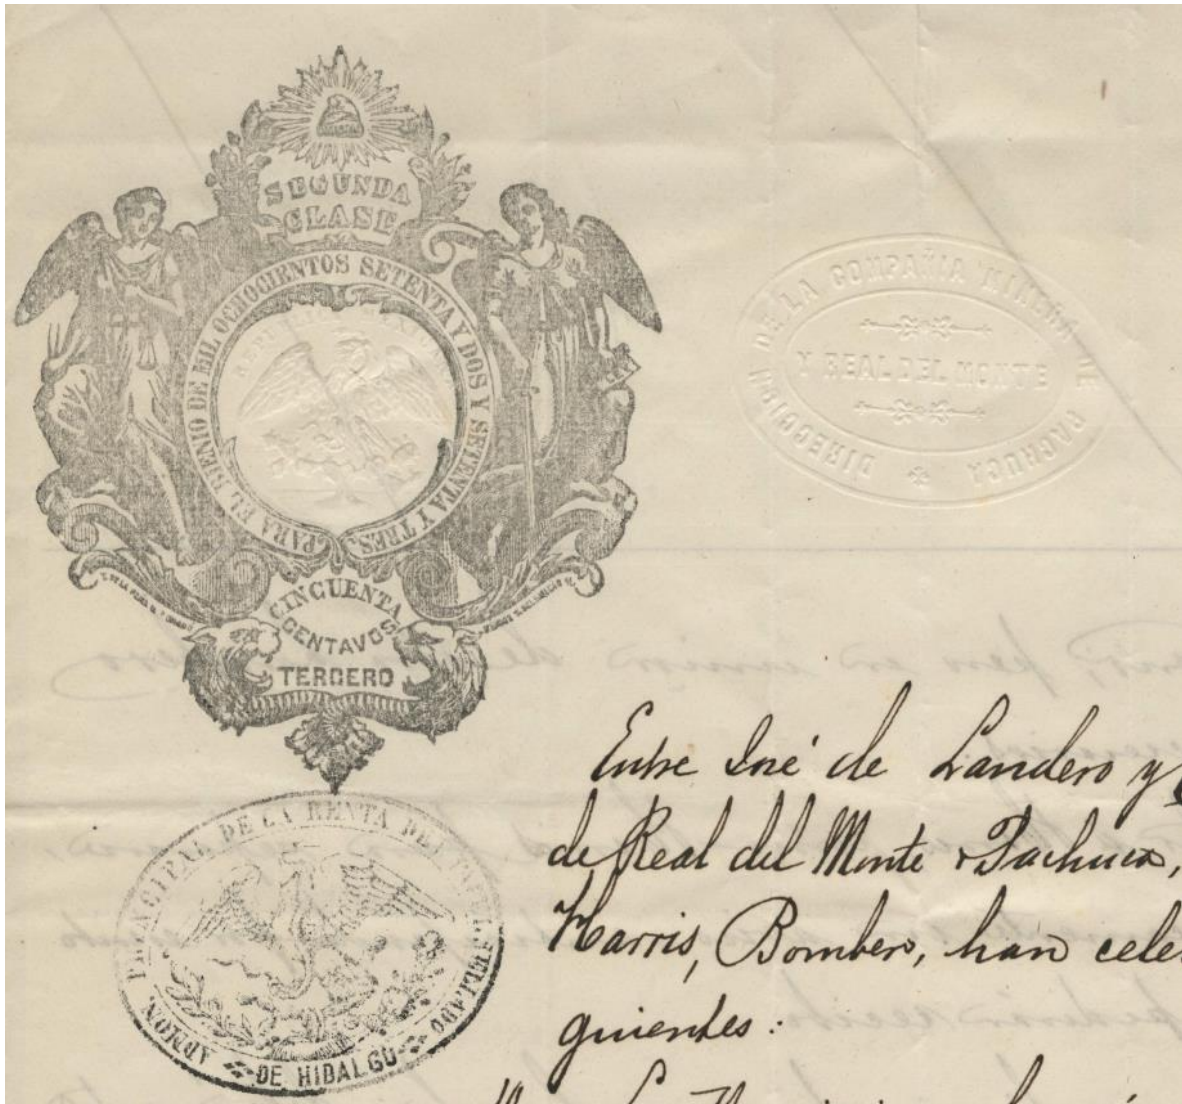 SEGUNDA
CLASE
PARA EL BIENIO DE MIL OCHOCIENTOS SETENTA Y DOS Y SETENTA Y TRES.
REPUBLICA MEXICANA
CINCUENTA
CENTAVOS
TERCERO
DIRECCION DE LA COMPAÑIA MINERA DE PACHUCA
Y REAL DEL MONTE
ADMON. PRINCIPAL DE LA RENTA DEL PAPEL SELLADO
DE HIDALGO
Entre José de Landero y
de Real del Monte y Pachuca,
Harris, Bombero, han cele
guientes: